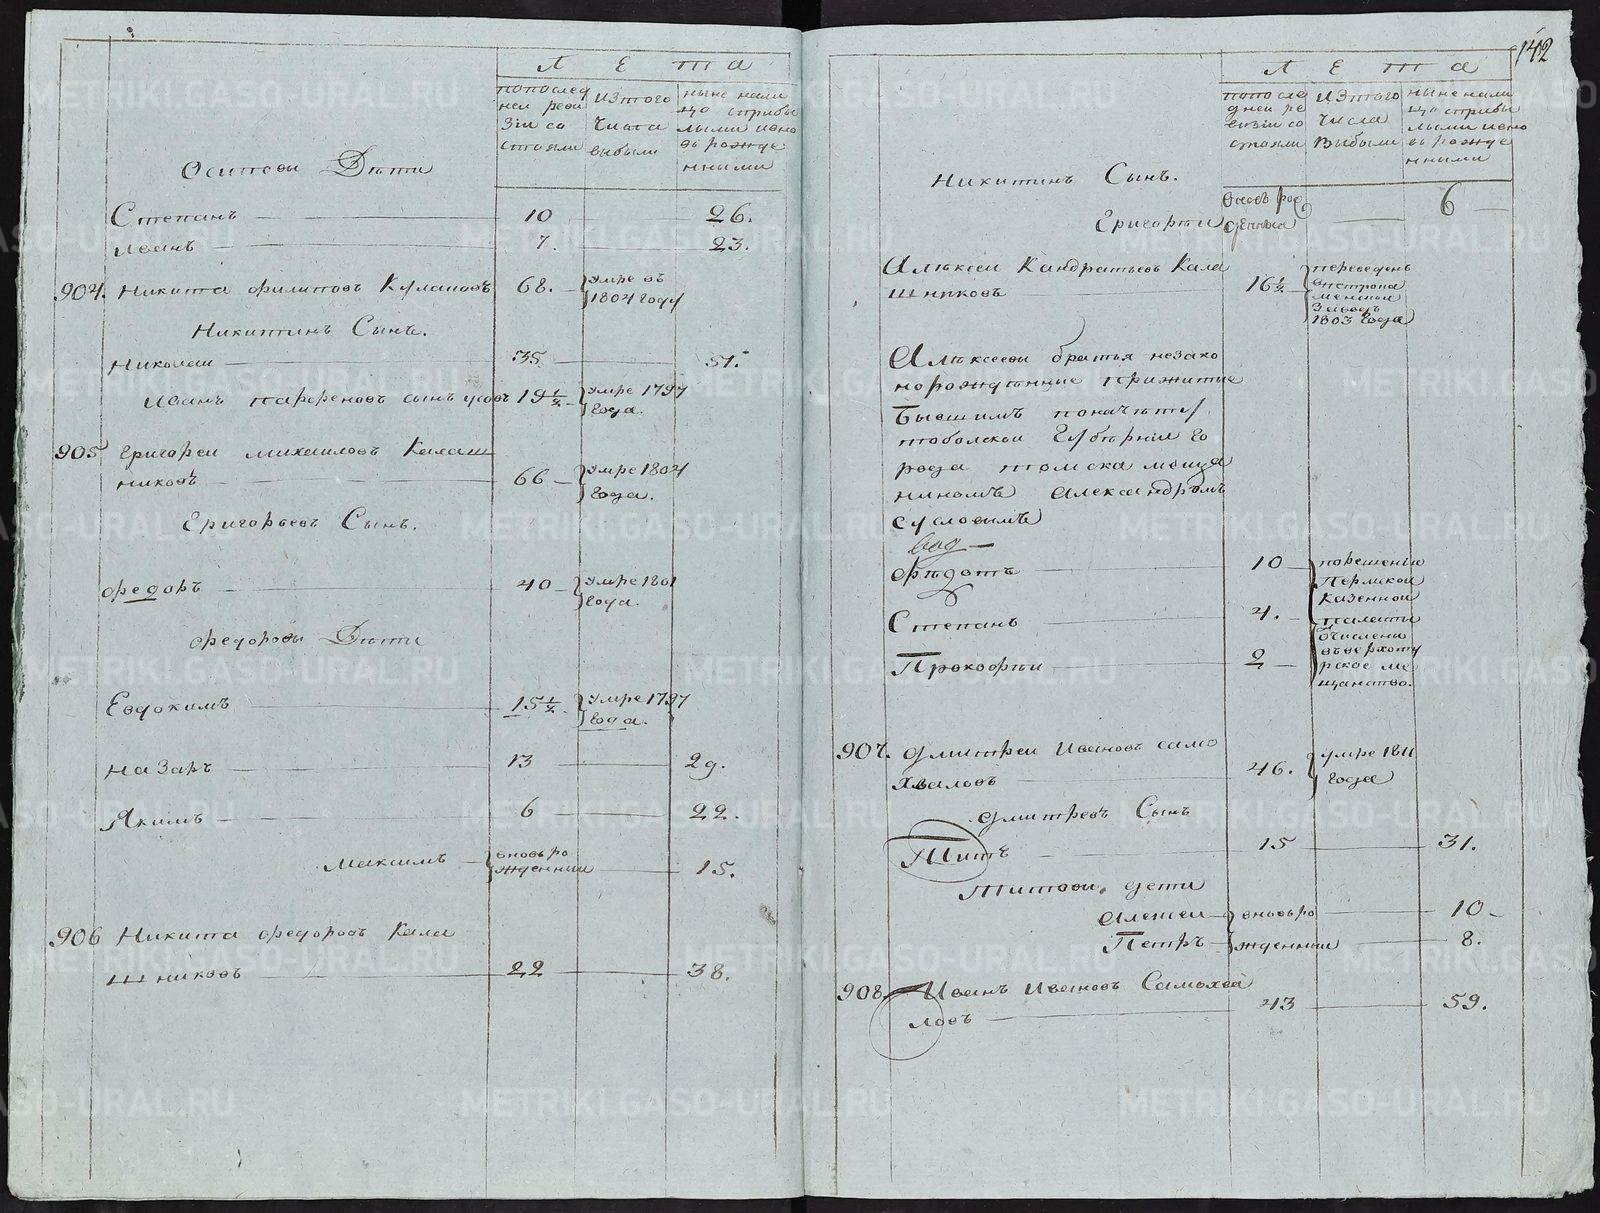 Лета
попослед
ней реви
зiи со
стояли
изтого
числа
выбыли
ныне нали
цо сприбы
лыми ивно
въ рожде
нными
Осиповы Дѣти
Степанъ 10 26.
Иванъ 7. 23.
904. Никита Филиповъ Кулаковъ 68. умре въ
1804 году
Никитинъ Сынъ.
Николаи 35 51.
Иванъ Парфеновъ сынъ усовъ 19½ умре 1797
года.
905 Григореи Михаиловъ Калаш
никовъ 66 умре 1804
года.
Григорьевъ Сынъ.
Федоръ 40 умре 1801
года.
Федоровы Дѣти
Евдокимъ 15½ умре 1797
года.
Назаръ 13 29.
Якимъ 6 22.
Максимъ вновь ро
жденный 15.
906 Никита Федоровъ Кала
шниковъ 22 38.
142
Лета
попосле
дней ре
визiи со
стояли
изтого
числа
выбыли
ныне нали
цо сприбы
лыми ивно
въ рожде
нными
Никитинъ Сынъ.
Григорти вновь рож
денный 6
Алѣксеи Кандратьевъ Кала
шниковъ 16½ переведенъ
1803 года
Алѣксеевы братья незако
норождѣнные прижитые
бывшимъ
тобольской Губѣрнiи го
рода томска меща
ниномъ Александромъ
сусловымъ
Фѣдотъ 10
Степанъ 4.
Прокофѣи 2
порешенiю
Пермской
казенной
палаты
отчислены
въ верхоту
рское ме
щанство.
907. Дмитреи Ивановъ само
хваловъ 46. умре 1811
года
Дмитревъ Сынъ
Титъ 15 31.
Титовы дети
Алексеи вновь ро 10
Петръ жденныи 8.
908. Иванъ Ивановъ Самохва
ловъ 43 59.
METRIKI.GASO-URAL.RU